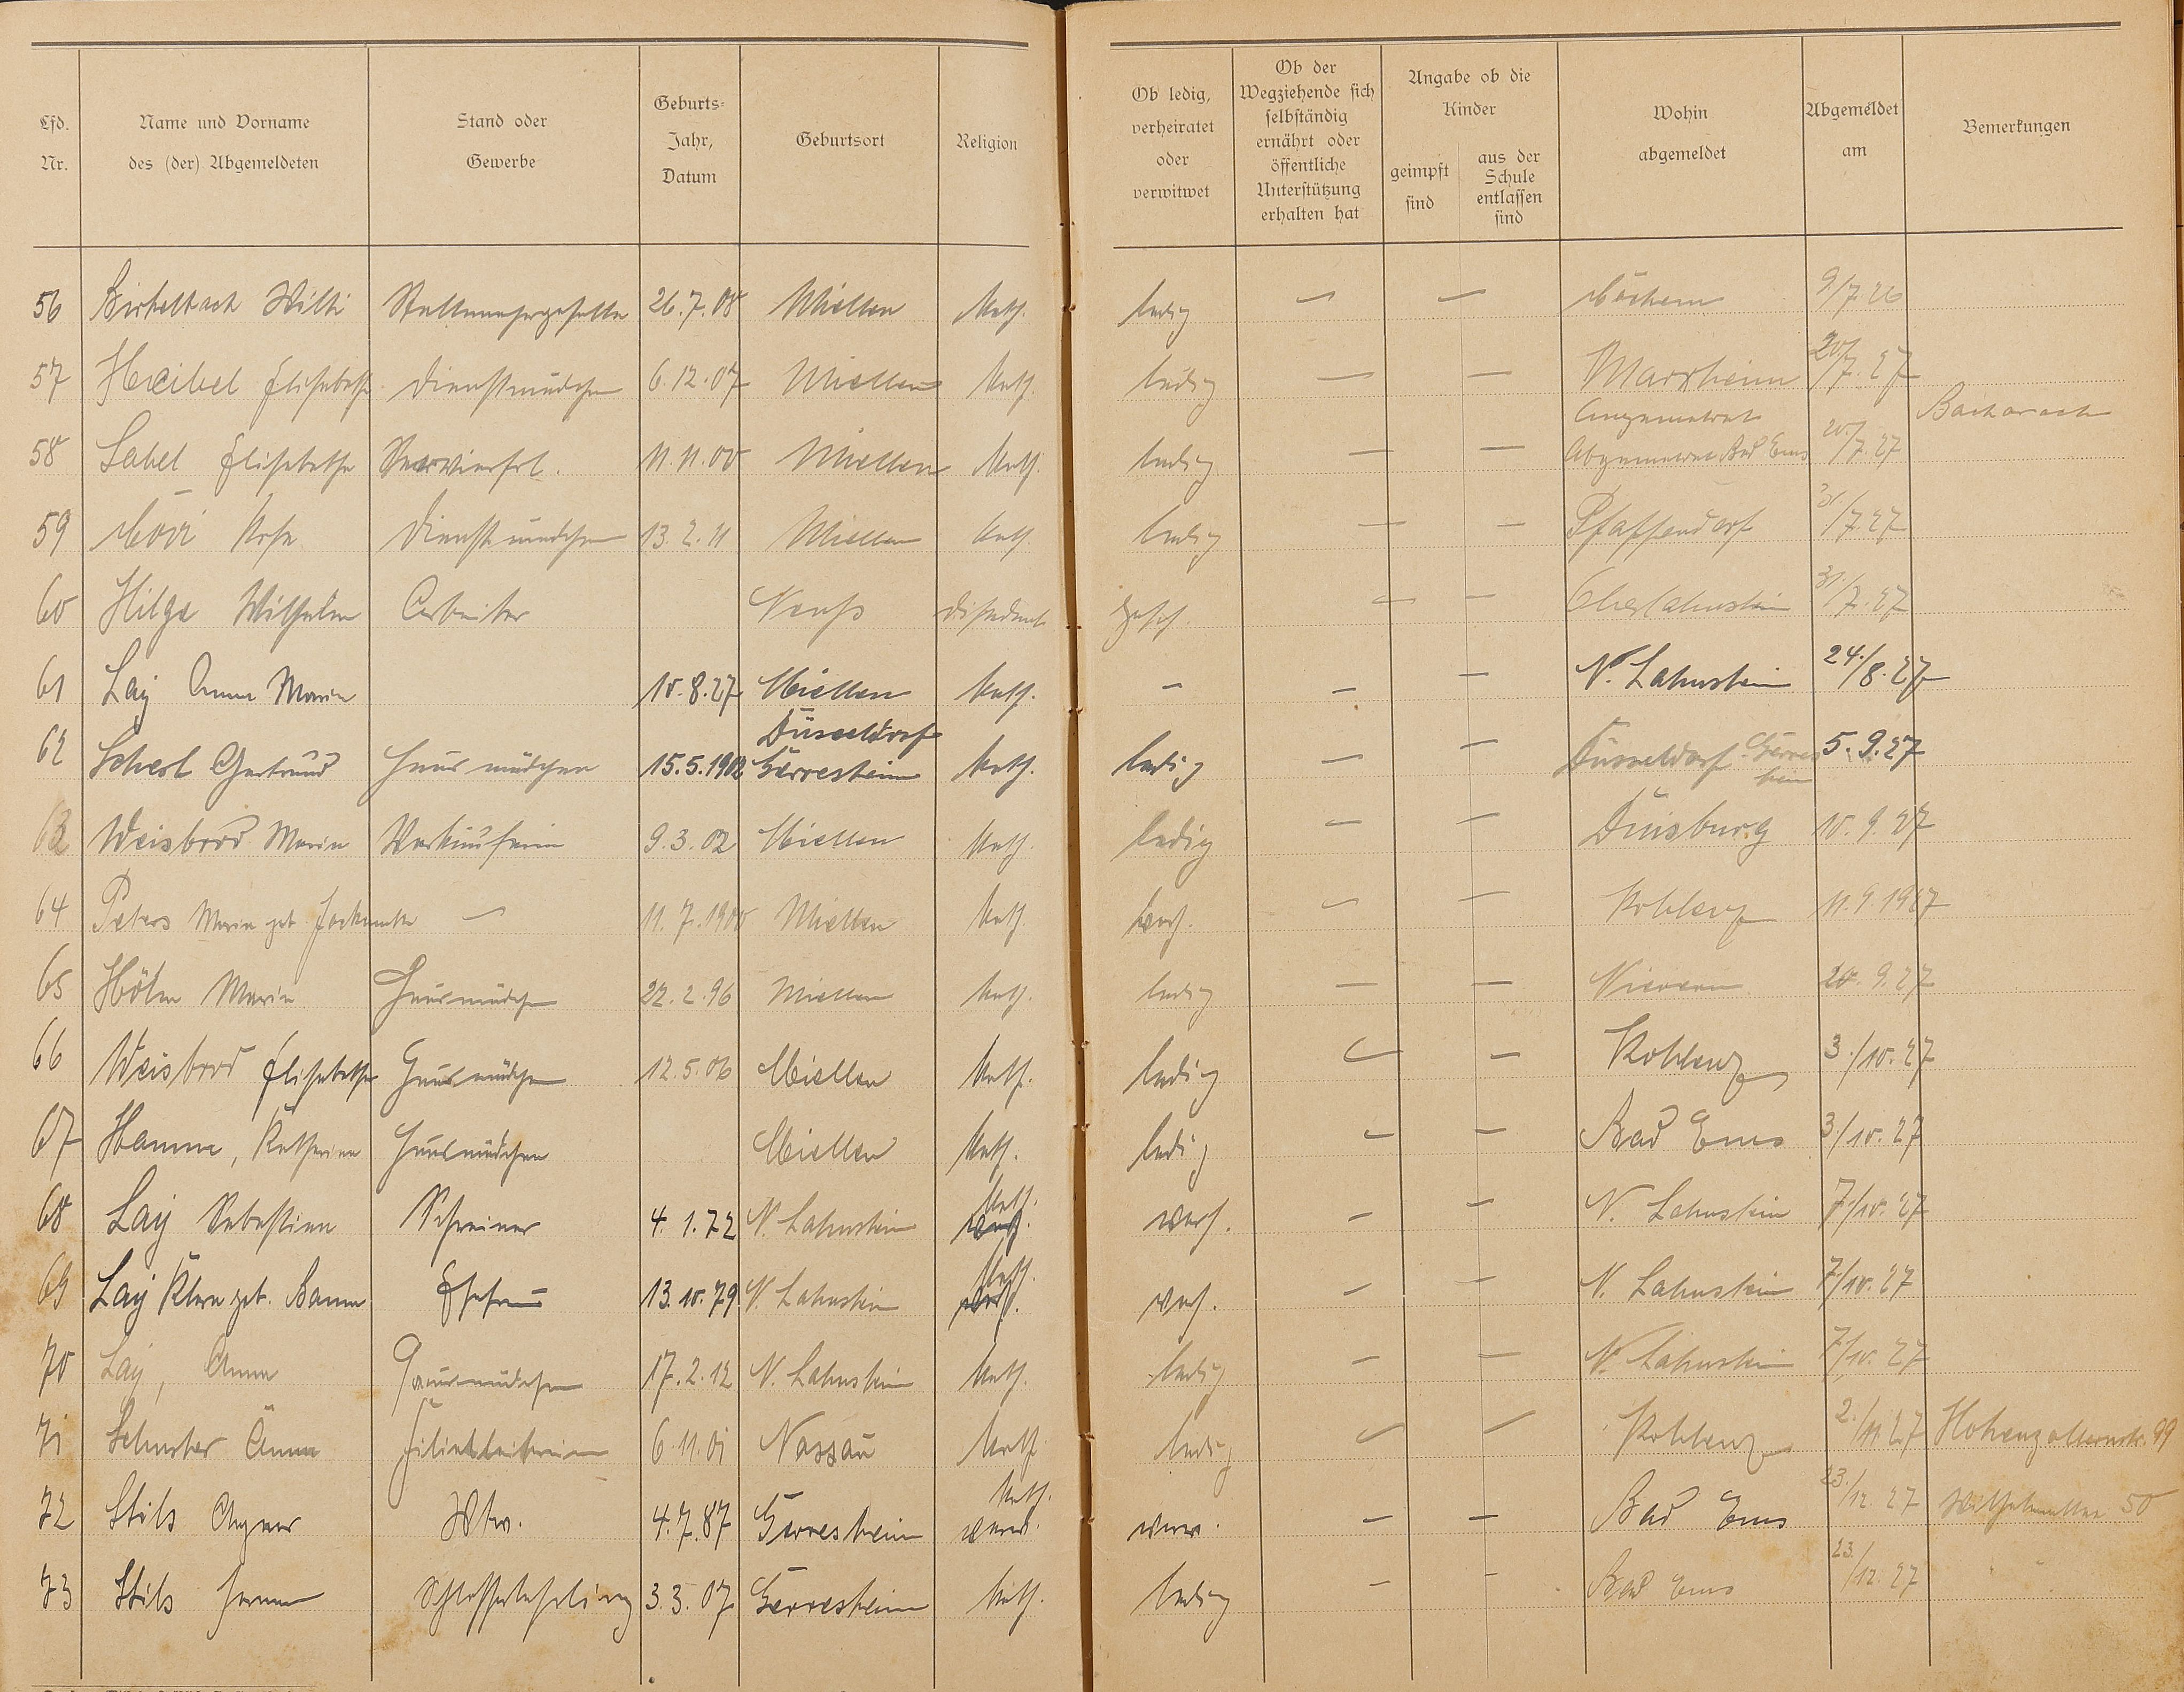 Lfd. Nr. Name und Vorname des (der) Abgemeldeten Stand oder Gewerbe Geburts-Jahr, Datum Geburtsort Religion Ob ledig, verheiratet oder verwitwet Ob der Wegziehende sich selbständig ernährt oder öffentliche Unterstützung erhalten hat Angabe ob die Kinder geimpft sind aus der Schule entlassen sind Wohin abgemeldet Abgemeldet am Bemerkungen
56 Willi 26.7.08 Miellen kath. ledig — — 9/7.26
57 Heibel Elisabeth Dienstmädchen 6.12.07 Miellen kath. ledig — — Marxheim 20/7.27
58 Sabel Elisabetha Servierfrl. 11.11.00 Miellen kath. ledig — — Angemeldet Abgemeldet Bad Ems 20/7.27 Bacharach
59 Rosa Dienstmädchen 13.2.11 Miellen kath. ledig — — Pfaffendorf 31/7.27
60 Hilge Wilhelm Arbeiter Neuß Disident gesch. — — Oberlahnstein 31/7.27
61 Lay Anna Maria 10.8.27 Miellen kath. — — — N. Lahnstein 24./8.27
62 Scherl Gertrud Hausmädchen 15.5.1902 Düsseldorf Gerresheim kath. ledig — — Düsseldorf Gerresheim 5.9.27
63 Weisbrod Maria Verkäuferin 9.3.02 Miellen kath. ledig — — Duisburg 10.9.27
64 Peters Maria geb. — 11.7.1900 Miellen kath. verh. — — Koblenz 11.9.1927
65 Höhn Maria Hausmädchen 22.2.96 Miellen kath. ledig — — Nievern 20.9.27
66 Weisbrod Elisabetha Hausmädchen 12.5.06 Miellen kath. ledig — — Koblenz 3./10.27
67 Hamm, Katharina Hausmädchen Miellen kath. ledig — — Bad Ems 3/10.27
68 Lay Sebastian Schreiner 4.1.72 N. Lahnstein kath. verh. — — N. Lahnstein 7/10.27
69 Lay Klara geb. Ehefrau 13.10.79 N. Lahnstein kath. verh. — — N. Lahnstein 7/10.27
70 Lay, Anna Hausmädchen 17.2.12 N. Lahnstein kath. ledig — — N. Lahnstein 7/10.27
71 Schuster Anna Filialleiterin 6.11.01 Nassau kath. ledig — — Koblenz 2./11.27 Hohenzollernstr. 99
72 Stils Wtw. 4.7.87 Gerresheim kath. verw. — — Bad Ems 23./12.27 Wilhelmsallee 50
73 Stils Schlosserlehrling 3.3.07 Gerresheim kath. ledig — — Bad Ems 23./12.27